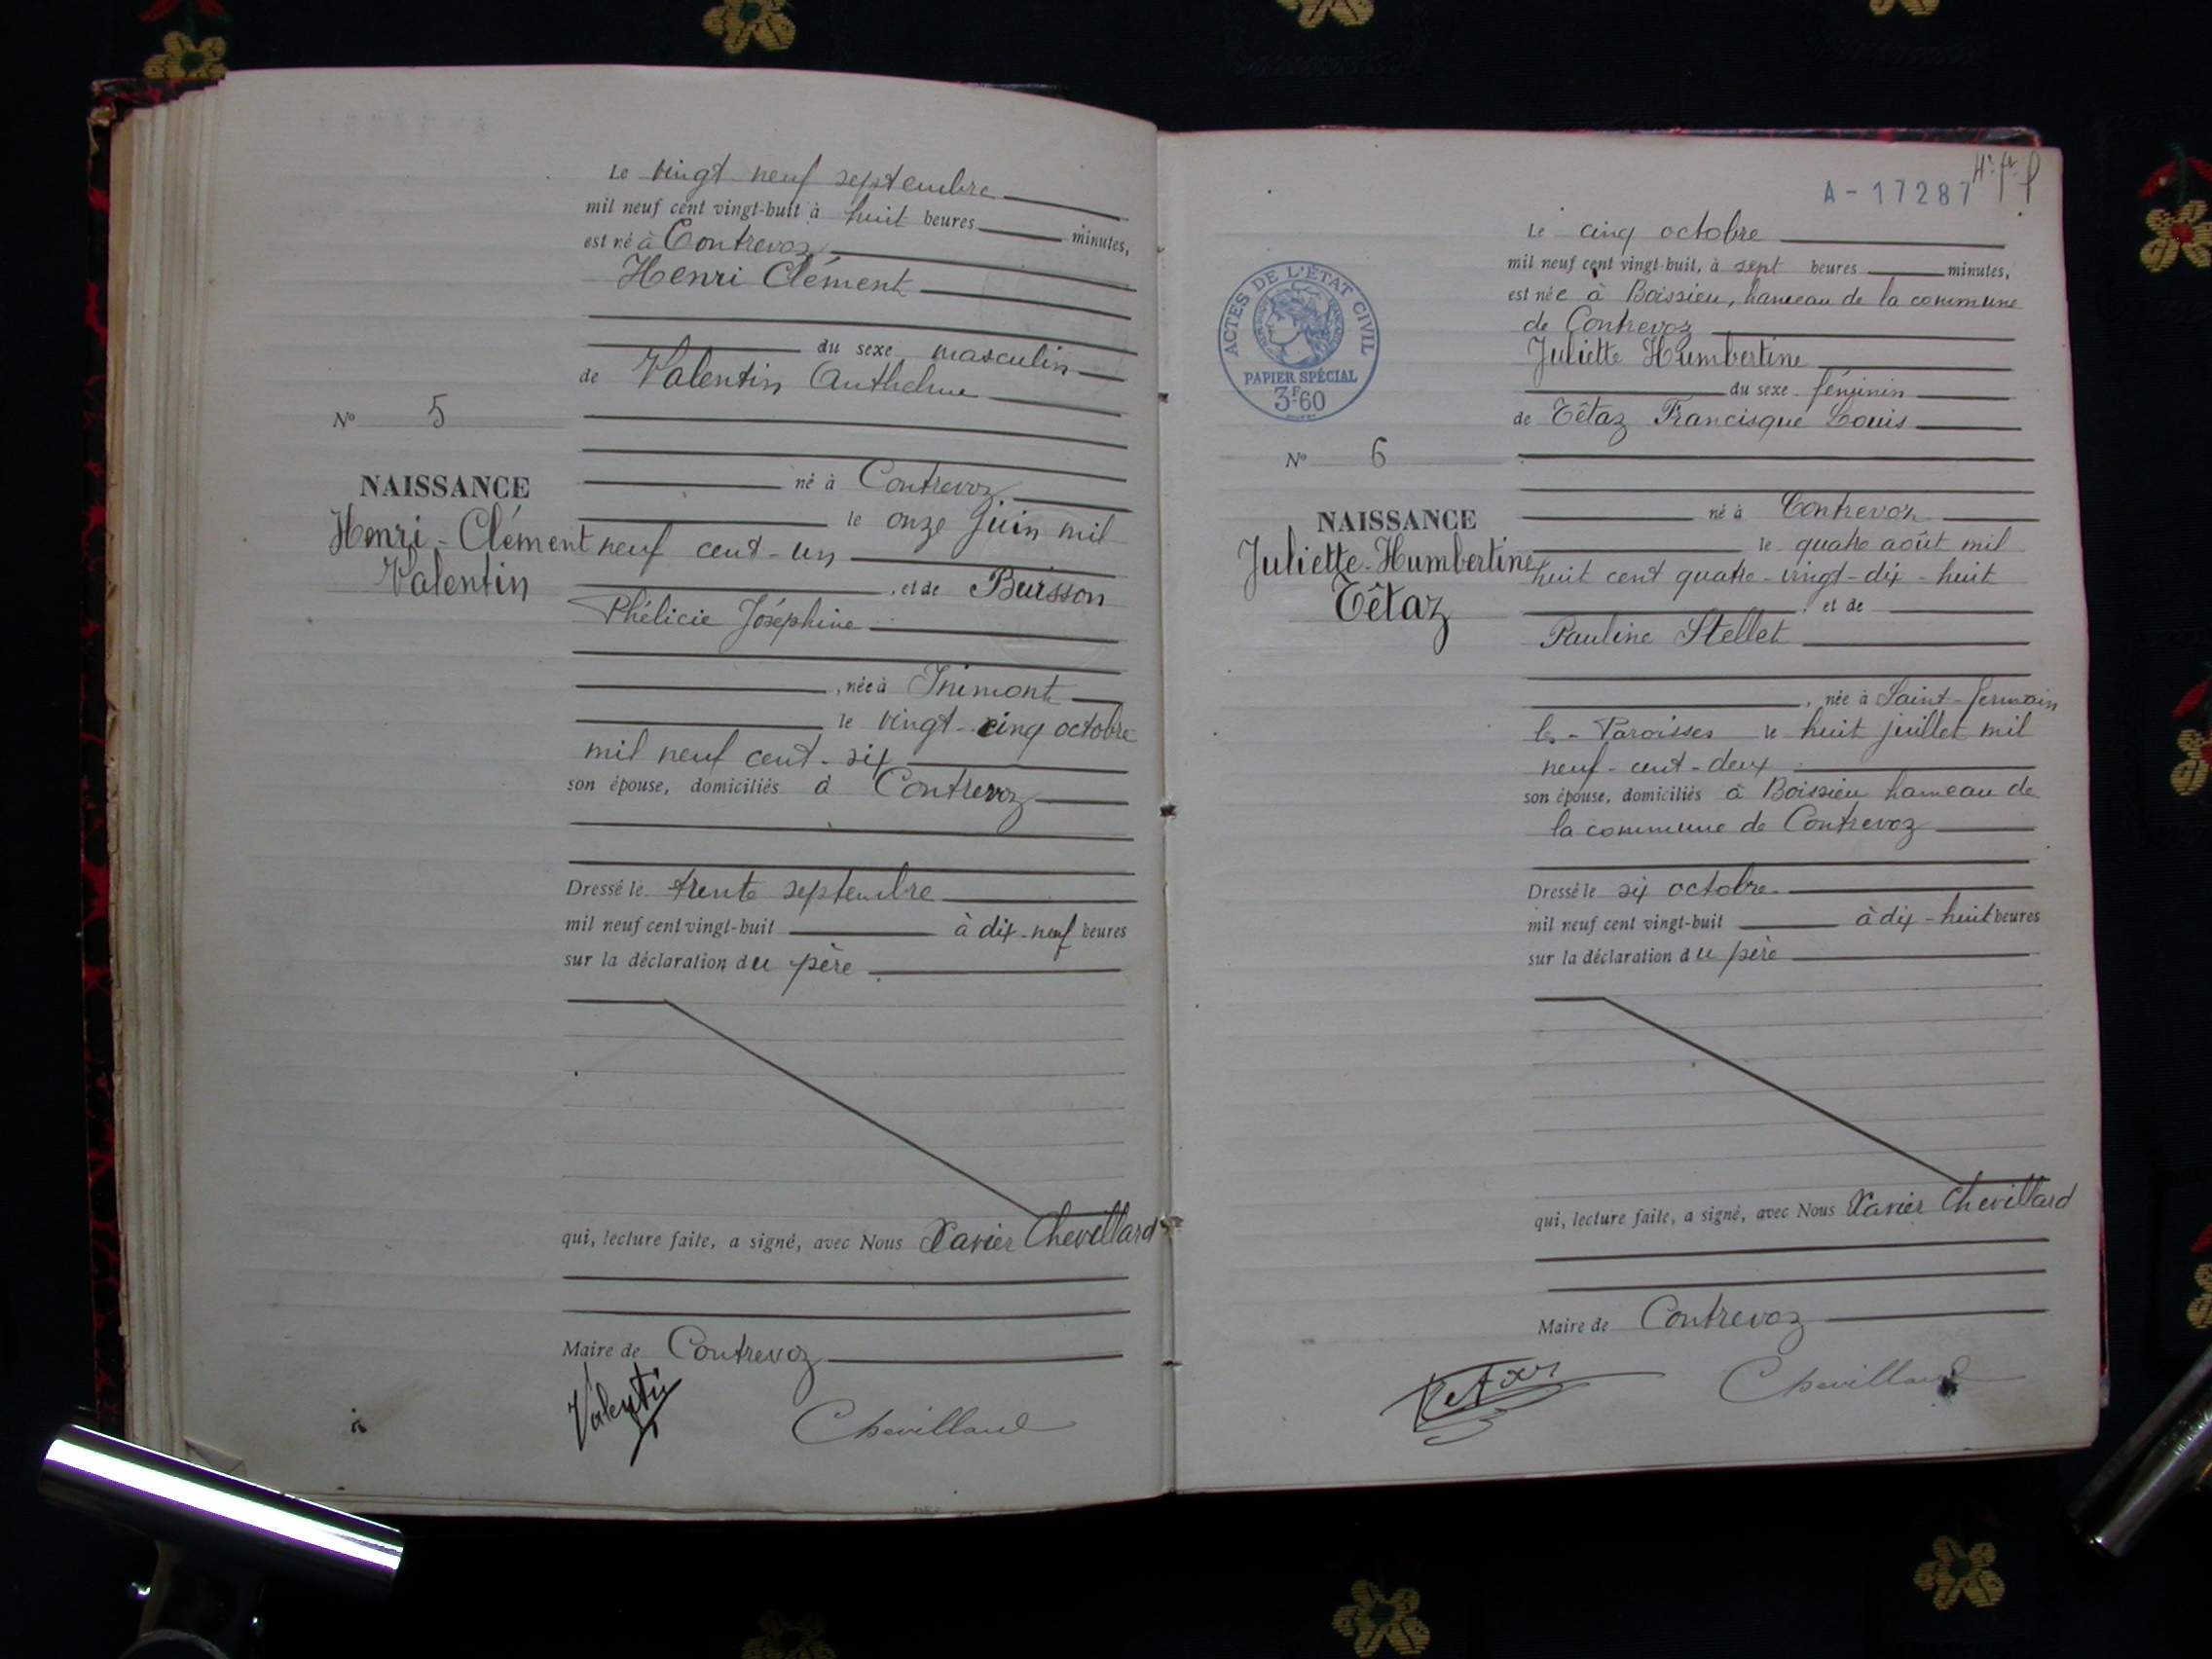 Le vingt neuf septembre
mil neuf cent vingt-huit à huit heures minutes,
est né à Contrevoz
Henri Clément
du sexe masculin
de Valentin Anthelme
N° 5
né à Contrevoz
NAISSANCE
Henri-Clément
Valentin
le onze juin mil
neuf cent-un
, et de Buisson
Phélicie Joséphine
, née à Inimont
le vingt-cinq octobre
mil neuf cent-six
son épouse, domiciliés à Contrevoz
Dressé le trente septembre
mil neuf cent vingt-huit à dix-neuf heures
sur la déclaration du père
qui, lecture faite, a signé, avec Nous Xavier Chevillard
Maire de Contrevoz
Valentin
Chevillard
A-17287
Le cinq octobre
mil neuf cent vingt-huit, à sept heures minutes,
est née à Boissieu, hameau de la commune
de Contrevoz
Juliette Humbertine
du sexe féminin
de Têtaz Francisque Louis
ACTES DE L'ÉTAT CIVIL
PAPIER SPÉCIAL
3F60
N° 6
né à Contrevoz
NAISSANCE
Juliette-Humbertine
Têtaz
le quatre août mil
huit cent quatre-vingt-dix-huit
, et de
Pauline Stellet
, née à Saint-Germain
les-Paroisses le huit juillet mil
neuf-cent-deux
son épouse, domiciliés à Boissieu hameau de
la commune de Contrevoz
Dressé le six octobre
mil neuf cent vingt-huit à dix-huit heures
sur la déclaration du père
qui, lecture faite, a signé, avec Nous Xavier Chevillard
Maire de Contrevoz
Chevillard